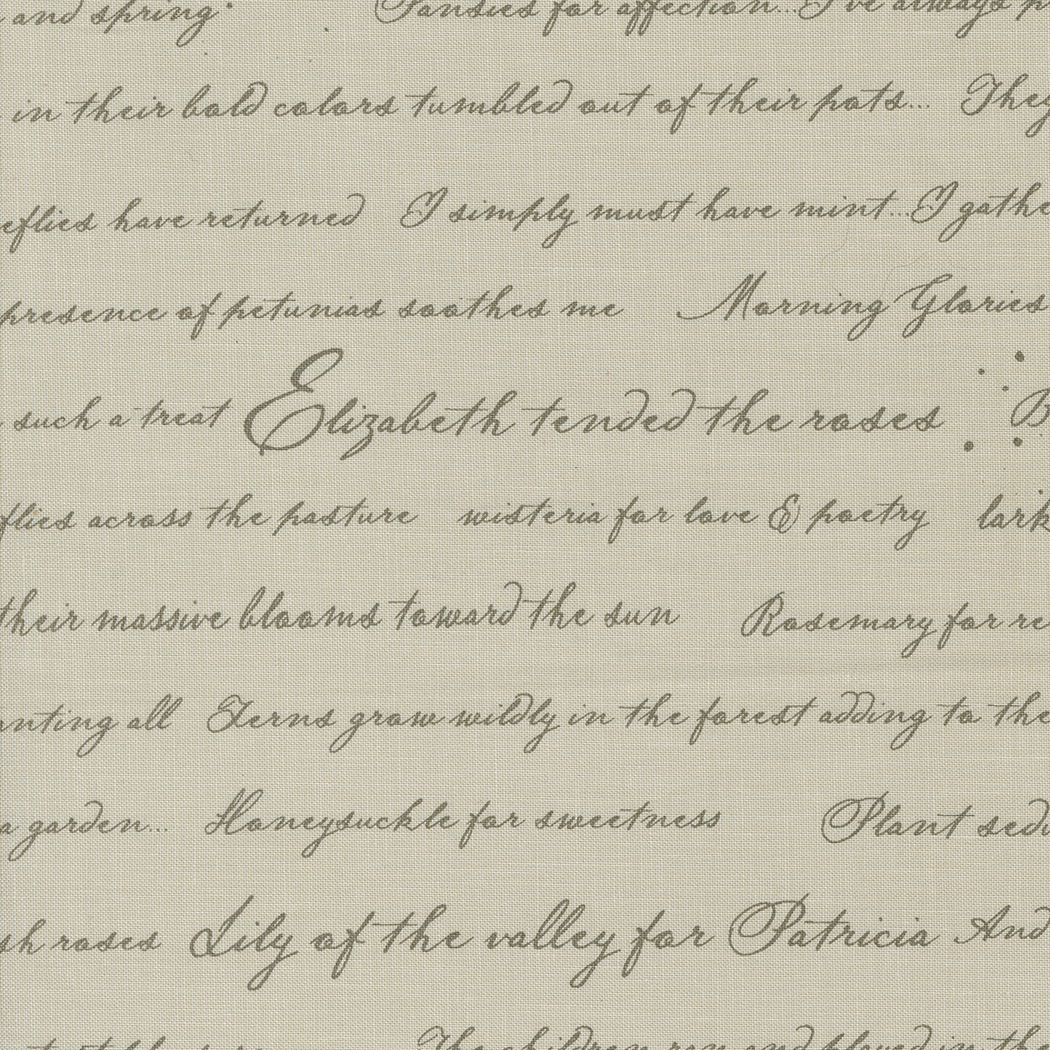 and spring Pansies for affection...I've always p
in their bold colors tumbled out of their pots... They
eflies have returned I simply must have mint...I gathe
presence of petunias soothes me Morning Glories
such a treat Elizabeth tended the roses B
flies across the pasture wisteria for love & poetry lark
their massive blooms toward the sun Rosemary for re
nting all Ferns grow wildly in the forest adding to the
a garden... Honeysuckle for sweetness Plant sed
sh roses Lily of the valley for Patricia And
The children ran and played in the